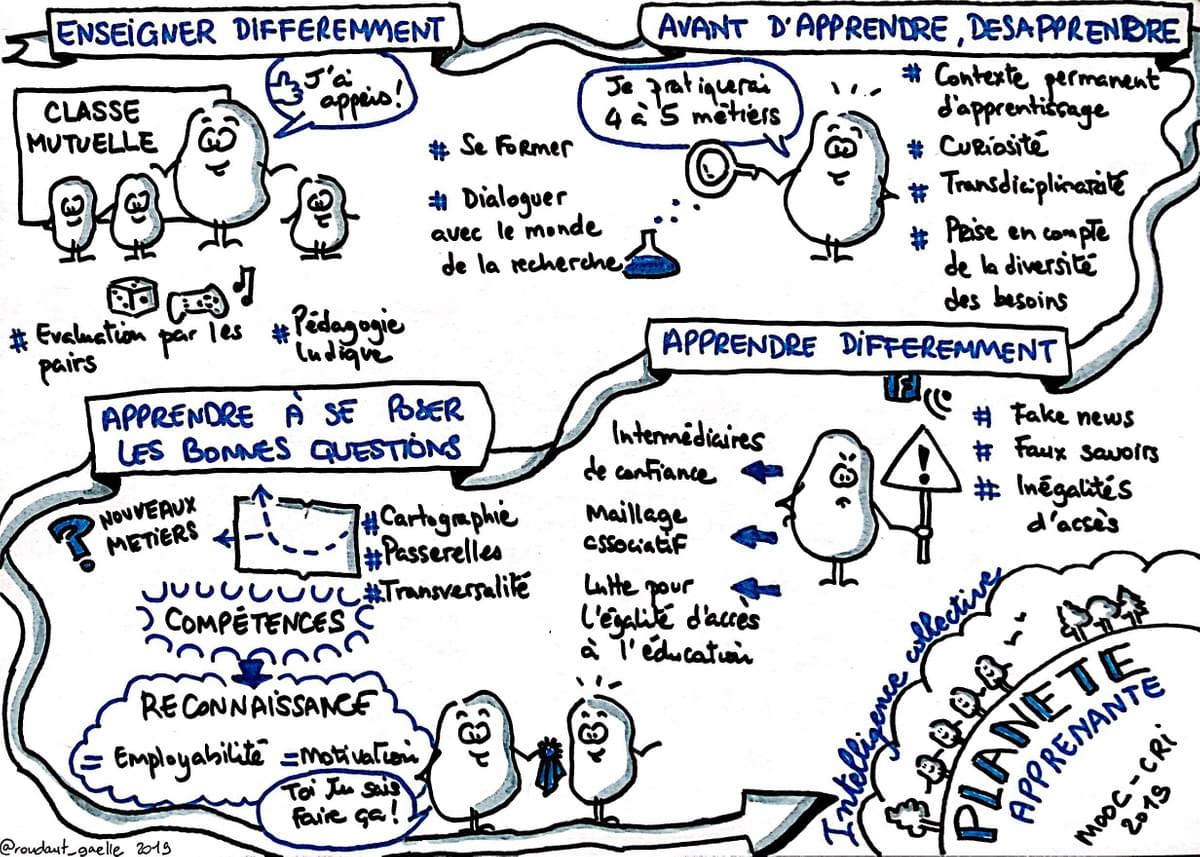 ENSEIGNER DIFFEREMMENT
J'ai
appris!
CLASSE
MUTUELLE
# Evaluation par les
pairs
# Pédagogie
ludique
# Se Former
# Dialoguer
avec le monde
de la recherche
AVANT D'APPRENDRE, DESAPPRENDRE
Je pratiquerai
4 à 5 métiers
# Contexte permanent
d'apprentissage
# Curiosité
# Transdiciplinarité
# Prise en compte
de la diversité
des besoins
APPRENDRE DIFFEREMMENT
f
# Fake news
# Faux savoirs
# Inégalités
d'accès
!
Intermédiaires
de confiance
Maillage
associatif
Lutte pour
l'égalité d'accès
à l'éducation
APPRENDRE À SE POSER
LES BONNES QUESTIONS
? NOUVEAUX
METIERS
#Cartographie
#Passerelles
#Transversalité
COMPÉTENCES
RECONNAISSANCE
= Employabilité = Motivation
Toi tu sais
faire ça!
Intelligence collective
PLANETE
APPRENANTE
MOOC-CRI
2019
@roudaut_gaelle 2019